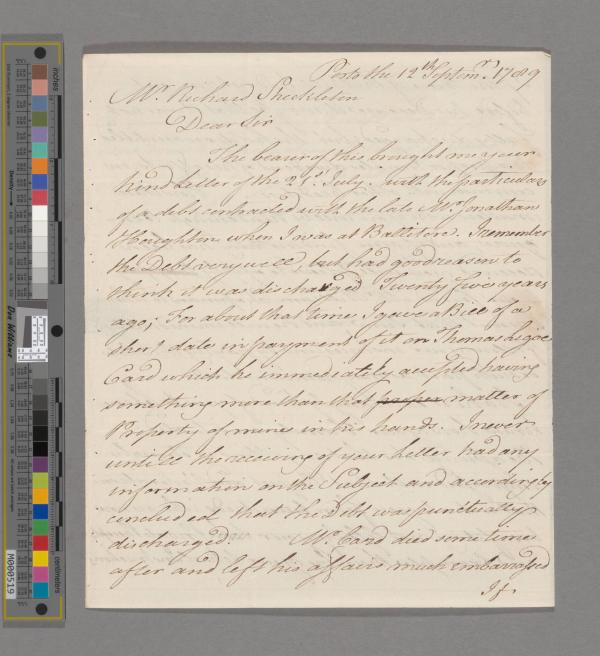 Porto the 12th Septemr. 1789
Mr. Richard Shackleton
Dear Sir
The bearer of this brought me your
kind Letter of the 21st. July. with the particulars
of a debt contracted with the late Mr. Jonathan
Houghton when I was at Ballitore. I remember
the Debt very well, but had good reason to
think it was discharged Twenty five years
ago; For about that time I gave a Bill of a
short date in payment of it on Thomas Ligoe
Card which he immediately accepted having
something more than that proper matter of
Property of mine in his hands. I never
untill the receiving of your Letter had any
information on the Subject and accordingly
concluded that the Debt was punctually
discharged. Mr. Card died some time
after and left his affairs much embarrassed
If
inches
centimetres
Don Williams
M000519